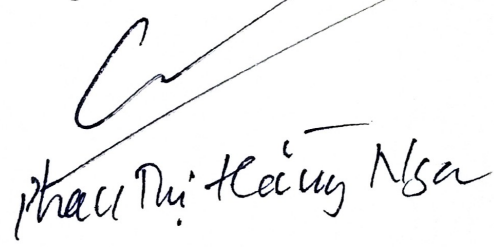 Phan Thị Hằng Nga